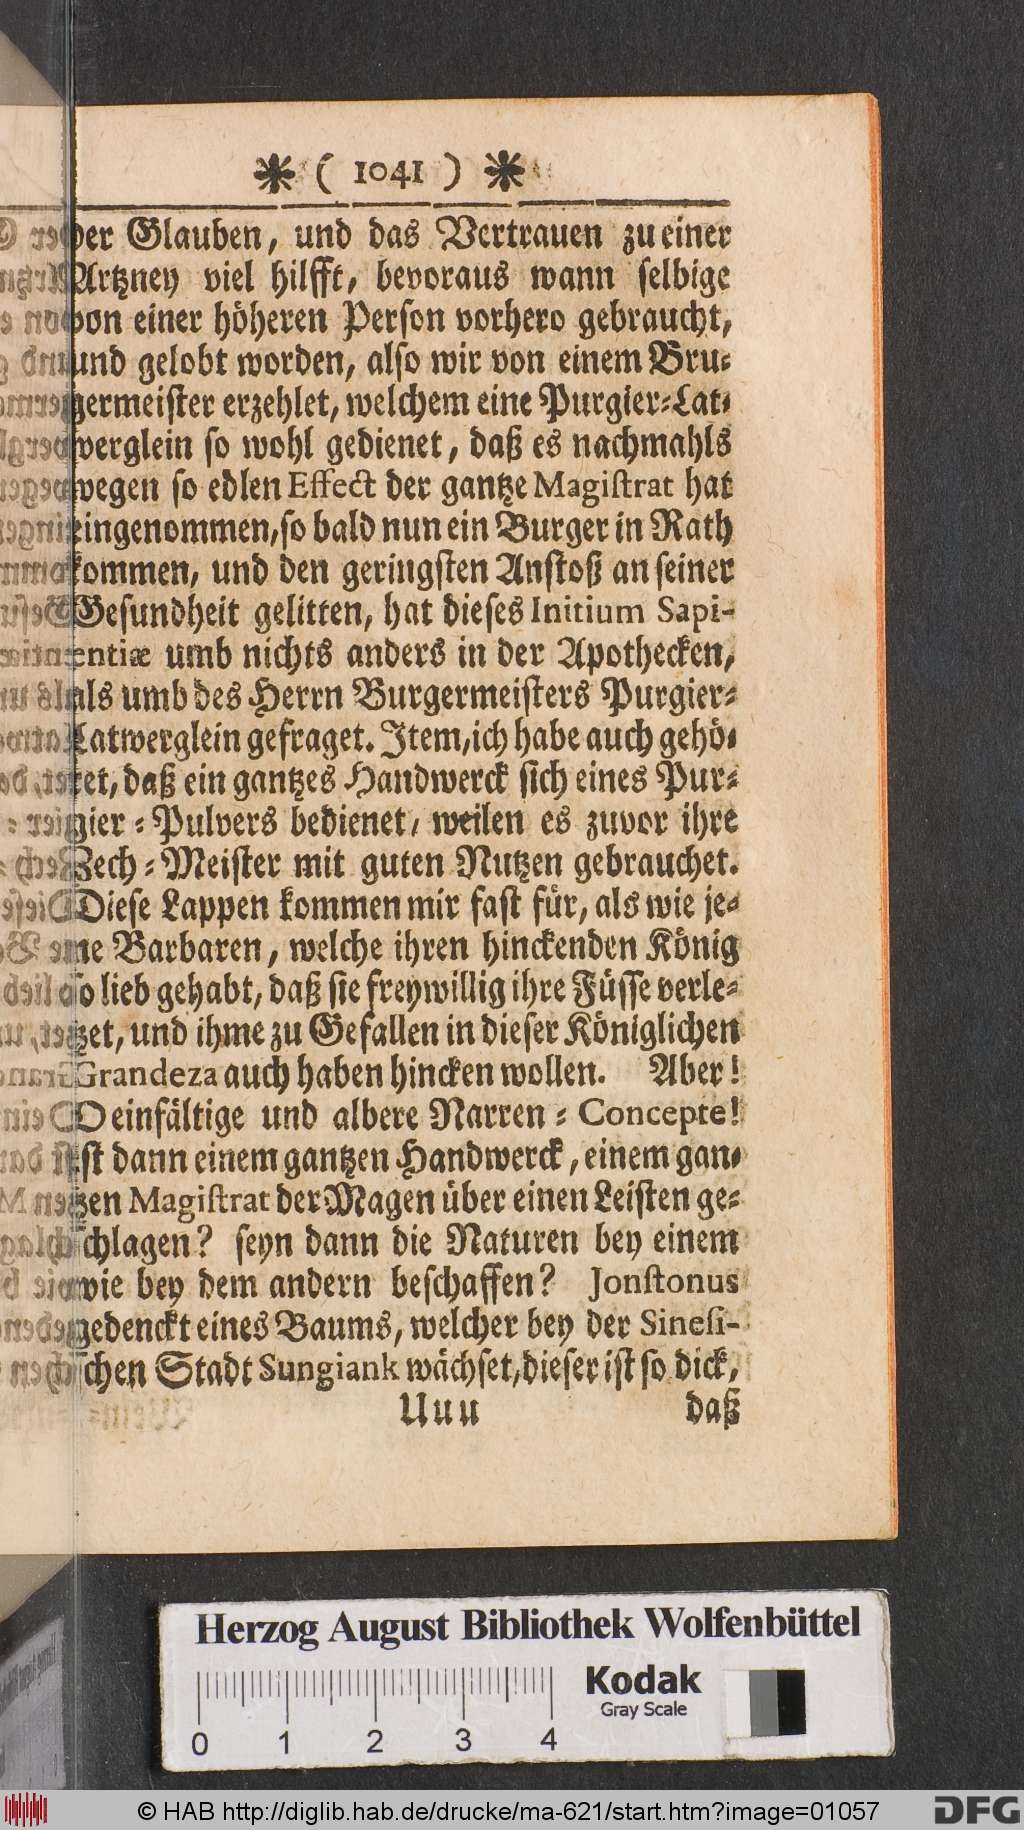 * ( 1041 ) *
der Glauben, und das Vertrauen zu einer
Artzney viel hilfft, bevoraus wann selbige
von einer höheren Person vorhero gebraucht,
und gelobt worden, also wir von einem Bru-
germeister erzehlet, welchem eine Purgier-Lat-
werglein so wohl gedienet, daß es nachmahls
wegen so edlen Effect der gantze Magistrat hat
eingenommen, so bald nun ein Burger in Rath
kommen, und den geringsten Anstoß an seiner
Gesundheit gelitten, hat dieses Initium Sapi-
entiæ umb nichts anders in der Apothecken,
als umb des Herrn Burgermeisters Purgier-
Latwerglein gefraget. Item, ich habe auch gehö-
ret, daß ein gantzes Handwerck sich eines Pur-
gier-Pulvers bedienet, weilen es zuvor ihre
Zech-Meister mit guten Nutzen gebrauchet.
Diese Lappen kommen mir fast für, als wie je-
ne Barbaren, welche ihren hinckenden König
so lieb gehabt, daß sie freywillig ihre Füsse verle-
tzet, und ihme zu Gefallen in dieser Königlichen
Grandeza auch haben hincken wollen. Aber!
O einfältige und albere Narren-Concepte!
ist dann einem gantzen Handwerck, einem gan-
tzen Magistrat der Magen über einen Leisten ge-
schlagen? seyn dann die Naturen bey einem
wie bey dem andern beschaffen? Jonstonus
gedenckt eines Baums, welcher bey der Sinesi-
schen Stadt Sungiank wächset, dieser ist so dick,
Uuu daß
Herzog August Bibliothek Wolfenbüttel
Kodak
Gray Scale
0 1 2 3 4
© HAB http://diglib.hab.de/drucke/ma-621/start.htm?image=01057
DFG